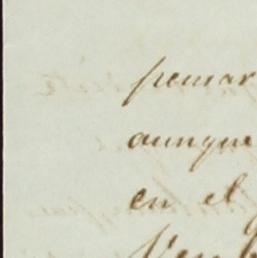 pensar
aunque
en el